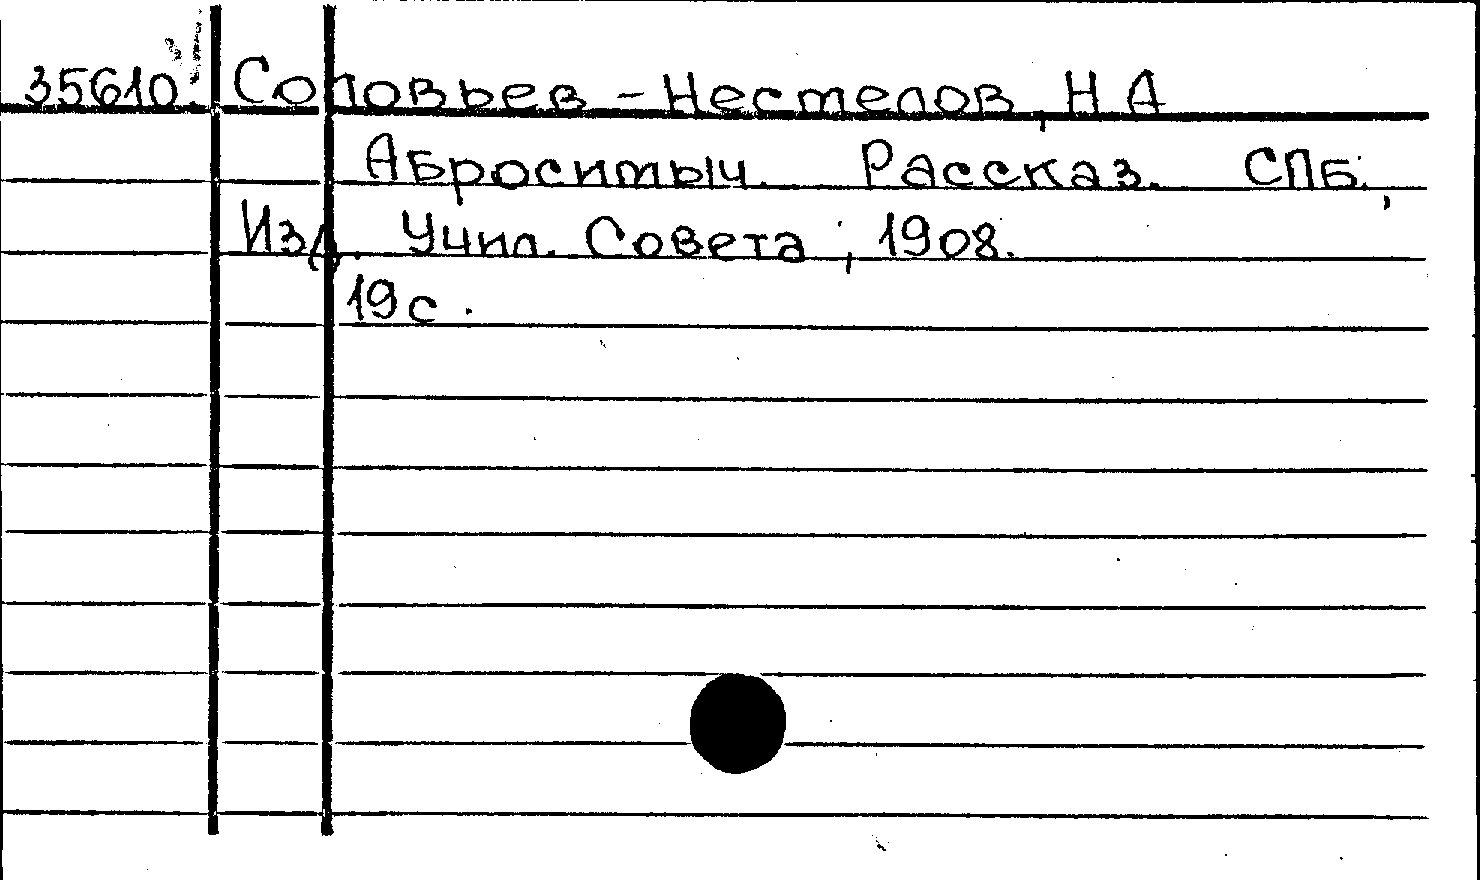 35610 Соловьев - Нестелов, Н А
Абросимыч. Рассказ. СПб.,
Изд. Учил. Совета, 1908.
19 с.